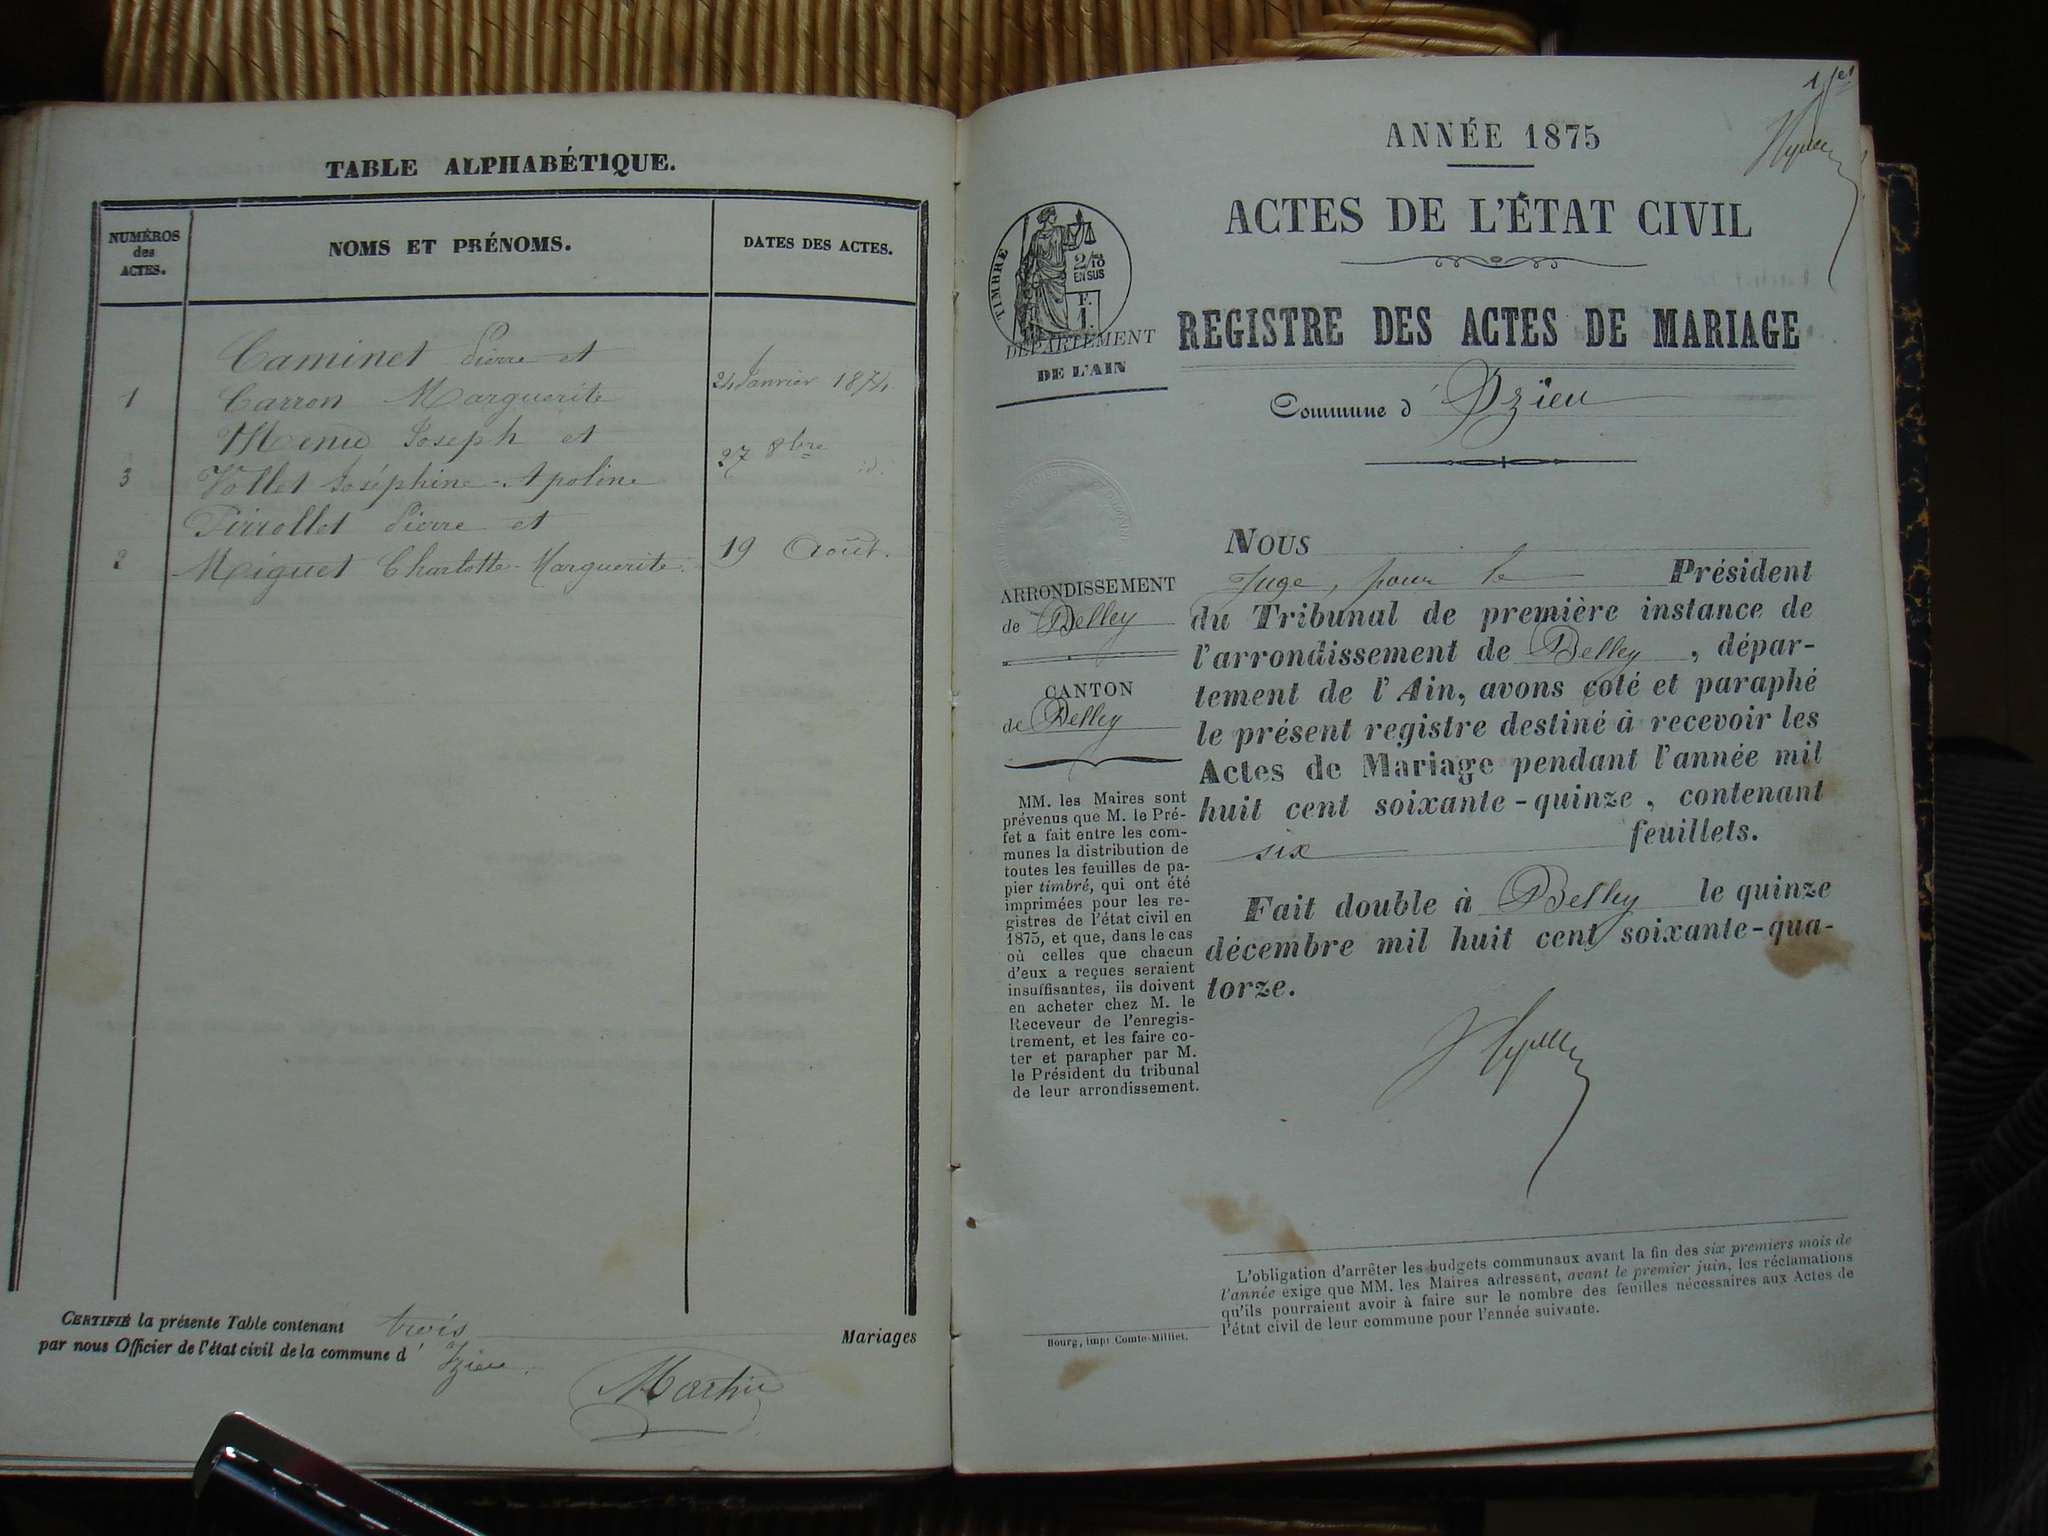 TABLE ALPHABÉTIQUE.
NUMÉROS
des
ACTES.
NOMS ET PRÉNOMS.
DATES DES ACTES.
Caminet Pierre et
1 Carron Marguerite 24 Janvier 1874.
Menu Joseph et
3 Vollet Joséphine-Apoline 27 8bre id.
Pirrollet Pierre et
2 Miguet Charlotte-Marguerite. 19 Août.
CERTIFIÉ la présente Table contenant trois Mariages
par nous Officier de l'état civil de la commune d'Izieu.
Martin
1er
ANNÉE 1875
ACTES DE L'ÉTAT CIVIL
TIMBRE
2/10
EN SUS
F.
1.
DÉPARTEMENT
DE L'AIN
REGISTRE DES ACTES DE MARIAGE
Commune d'Izieu
ARRONDISSEMENT
de Belley
CANTON
de Belley
MM. les Maires sont
prévenus que M. le Pré-
fet a fait entre les com-
munes la distribution de
toutes les feuilles de pa-
pier timbré, qui ont été
imprimées pour les re-
gistres de l'état civil en
1875, et que, dans le cas
où celles que chacun
d'eux a reçues seraient
insuffisantes, ils doivent
en acheter chez M. le
Receveur de l'enregis-
trement, et les faire co-
ter et parapher par M.
le Président du tribunal
de leur arrondissement.
NOUS
Juge, pour le Président
du Tribunal de première instance de
l'arrondissement de Belley, dépar-
tement de l'Ain, avons coté et paraphé
le présent registre destiné à recevoir les
Actes de Mariage pendant l'année mil
huit cent soixante-quinze, contenant
six feuillets.
Fait double à Belley le quinze
décembre mil huit cent soixante-qua-
torze.
L'obligation d'arrêter les budgets communaux avant la fin des six premiers mois de
l'année exige que MM. les Maires adressent, avant le premier juin, les réclamations
qu'ils pourraient avoir à faire sur le nombre des feuilles nécessaires aux Actes de
l'état civil de leur commune pour l'année suivante.
Bourg, imp. Comte-Milliet.